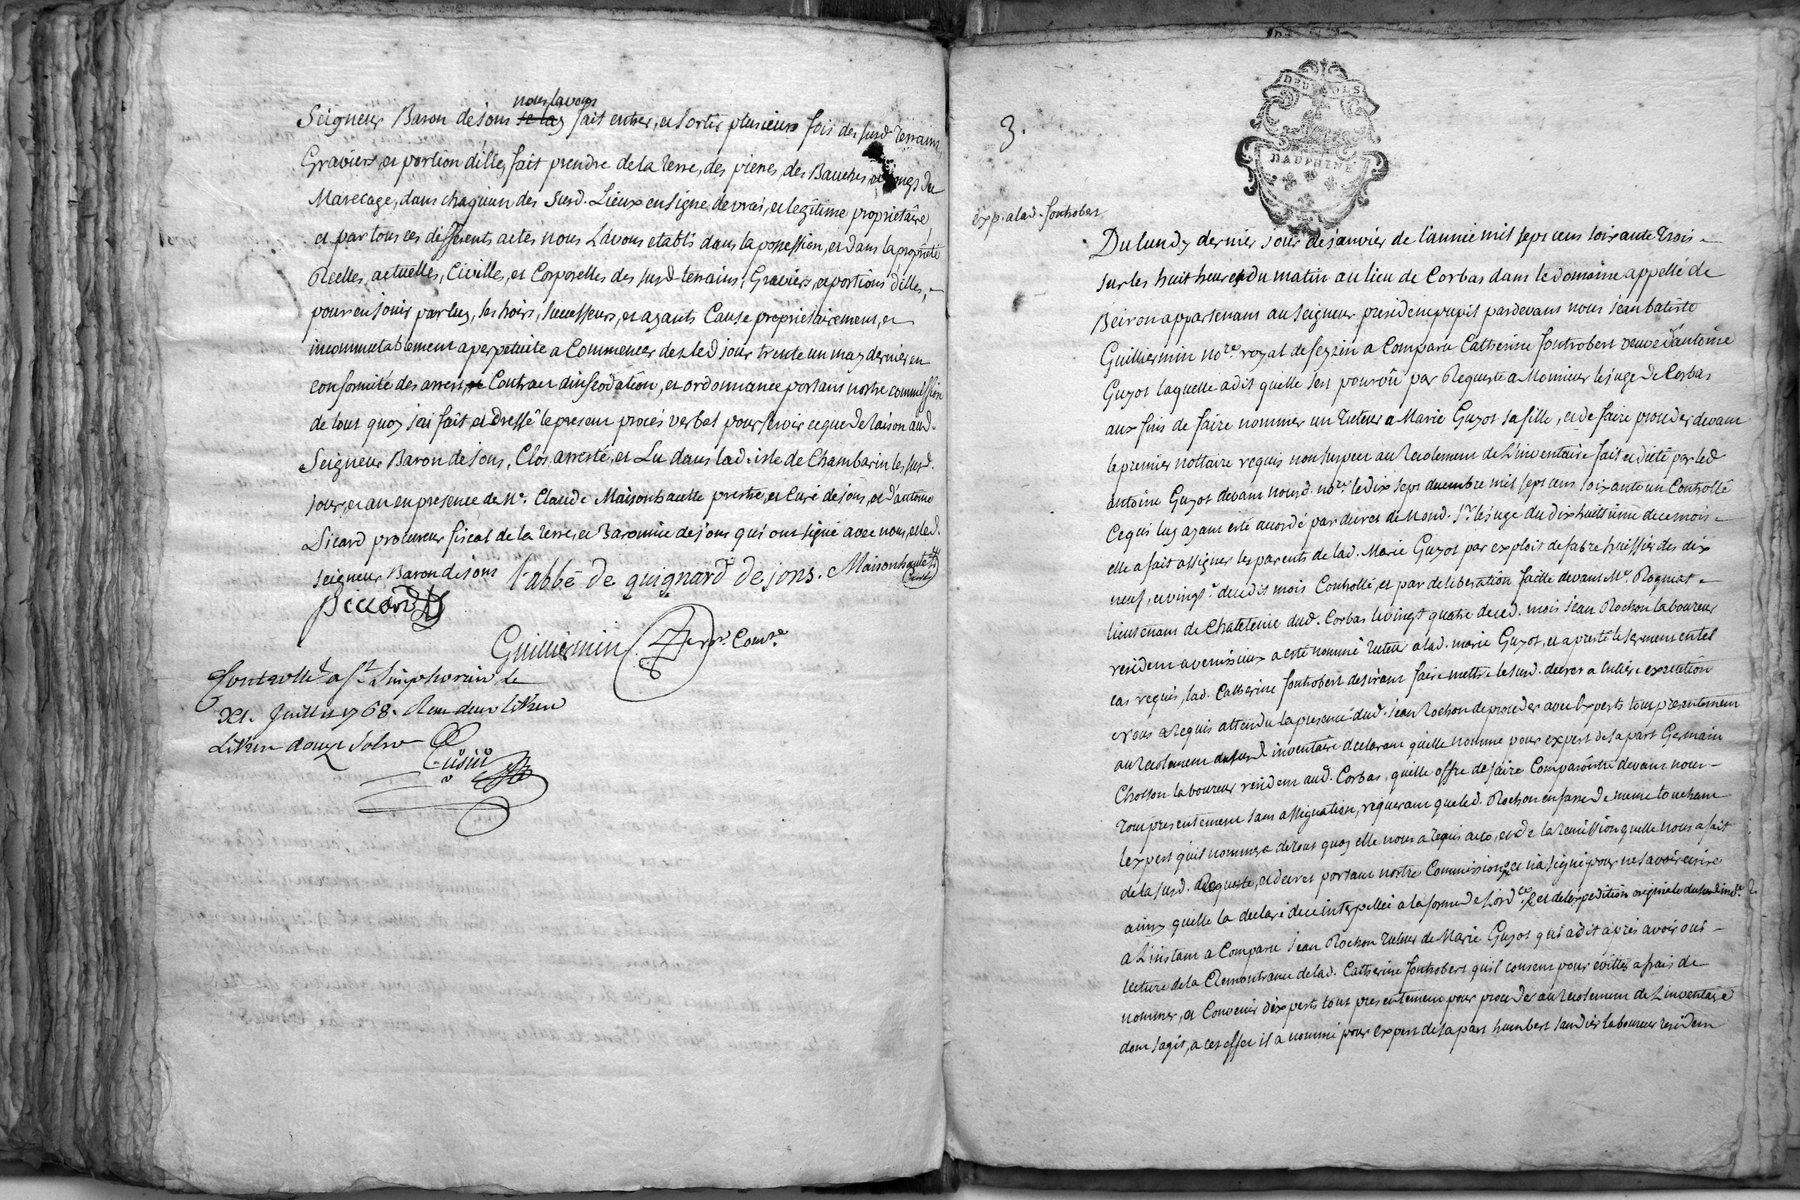 nous lavons
Seigneur Baron de jons se lay fait entrer, et sortir plusieurs fois des susd. terrains,
Graviers, et portion d'illes, fait prendre de la terre, des pierres, des Bauches et joncs du
Marecage, dans chaquun des susd. Lieux en signe de vrai, et legitime proprietaire,
et par tous ces differents actes nous L'avons etabli dans la possession, et dans la proprieté
Reelles, actuelles, Civille, et Corporelles des susd. terrains, Graviers, et portions d'illes,
pour en jouir par luy, ses hoirs, successeurs, et ayants Cause proprietairement, et
incommutablement a perpetuité a Commencer dez led jour trente un may dernier en
conformité des arrest et Contract d'infeodation, et ordonnance portant nostre commission
de tout quoy j'ai fait et dressé le present procés verbal pour servir ce que de raison aud.
Seigneur Baron de jons, Clos, arresté, et Lu dans lad. isle de Chambarin les susd.
jour, et an en presence de Me. Claude Maisonhaute prestre, et Curé de jons, et d'antoine
Sicard procureur fiscal de la terre, et Baronnie de jons qui ont signé avec nous, et led.
seigneur Baron de jons l'abbé de guignard de jons. Maisonhaute
Curé
Siccard
Guilliermin
Controllé a St. Simphorien, le
XI. Juillet 1768. Reçu
3.
DEUX SOLS
DAUPHINE
exp. a lad. fontrobert
Du lundy dernier jour de janvier de l'année mil sept cent soixante trois
sur les huit heures du matin au lieu de Corbas dans le domaine appellé de
Beiron appartenant au seigneur president pupil pardevant nous jean batiste
Guilliermin nore. royal de feyzin a Comparu Catherine fontrobert veuve d'antoine
Guyot laquelle a dit quelle s'est pourvû par Requeste a Monsieur le juge de Corbas
aux fins de faire nommer un tuteur a Marie Guyot sa fille, et de faire proceder devant
le premier nottaire requis non suspect au recolement de L'inventaire fait et dicté par led
antoine Guyot devant nousd. nore. le dix sept decembre mil sept cent soixante un Controllé
Ce qui luy ayant esté accordé par decret de Mond. Sr. le juge du dix huittieme de ce mois
elle a fait assigner les parents de lad. Marie Guyot par exploit de fabre huissier des dix
neuf, et vingt dud. mois Controllé, et par deliberation faitte devant Me. Rogniat
lieutenant de Chatelenie dud. Corbas le vingt quatre de ced. mois jean Rochon laboureur
resident a venissieux a esté nommé tuteur a lad. marie Guyot, et a presté le serment en tel
cas requis, lad. Catherine fontrobert desirant faire mettre le susd. decret a entiere execution
nous a requis attendu la presence dud. jean Rochon de proceder avec Experts tout presentement
au recolement du susd. inventaire declarant quelle nomme pour expert de sa part Germain
Chosson laboureur resident aud. Corbas, quelle offre de faire Comparoitre devant nous
tout presentement sans assignation, requerant que led. Rochon en fasse de meme touchant
l'expert qu'il nommera de tout quoy elle nous a requis acte, et de la remission quelle nous a fait
de la susd. Requeste, et decret portant nostre Commission, et n'a signé pour ne savoir ecrire
ainsy quelle la declaré de ce interpellée a la forme de Lordce. et de l'expedition originale du susd. inve.
a L'instant a Comparu jean Rochon tuteur de Marie Guyot qui a dit après avoir oui
lecture de la Remontrance de lad. Catherine fontrobert qu'il consent pour eviter a frais de
nommer, et Convenir d'experts tout presentement pour proceder au recolement de L'inventaire
dont s'agit, a cet effet il a nommé pour expert de sa part humbert jandier laboureur resident